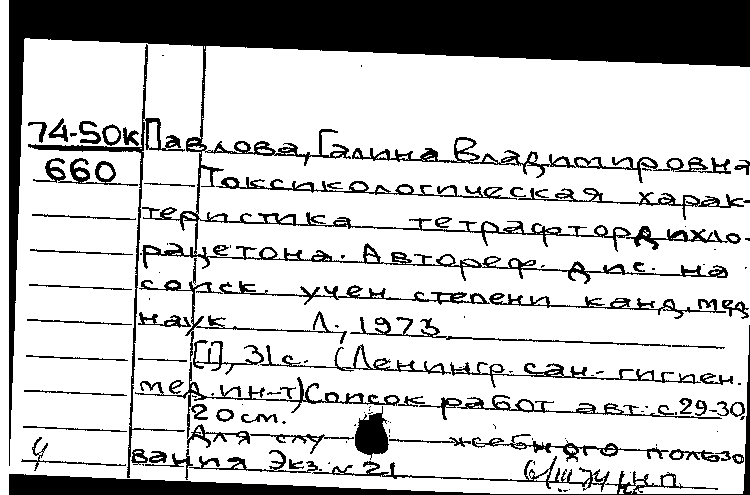 74-50к Павлова, Галина Владимировна
660 Токсикологическая харак-
теристика тетрафтордихло-
рацетона. Автореф. дис. на
соиск. учен степени канд. мед
наук. Л., 1973.
[1], 31 с. (Ленингр. сан.-гигиен.
мед. ин-т) Список работ авт: с. 29-30,
20 см.
Для слу жебного пользо
вания Экз. № 21